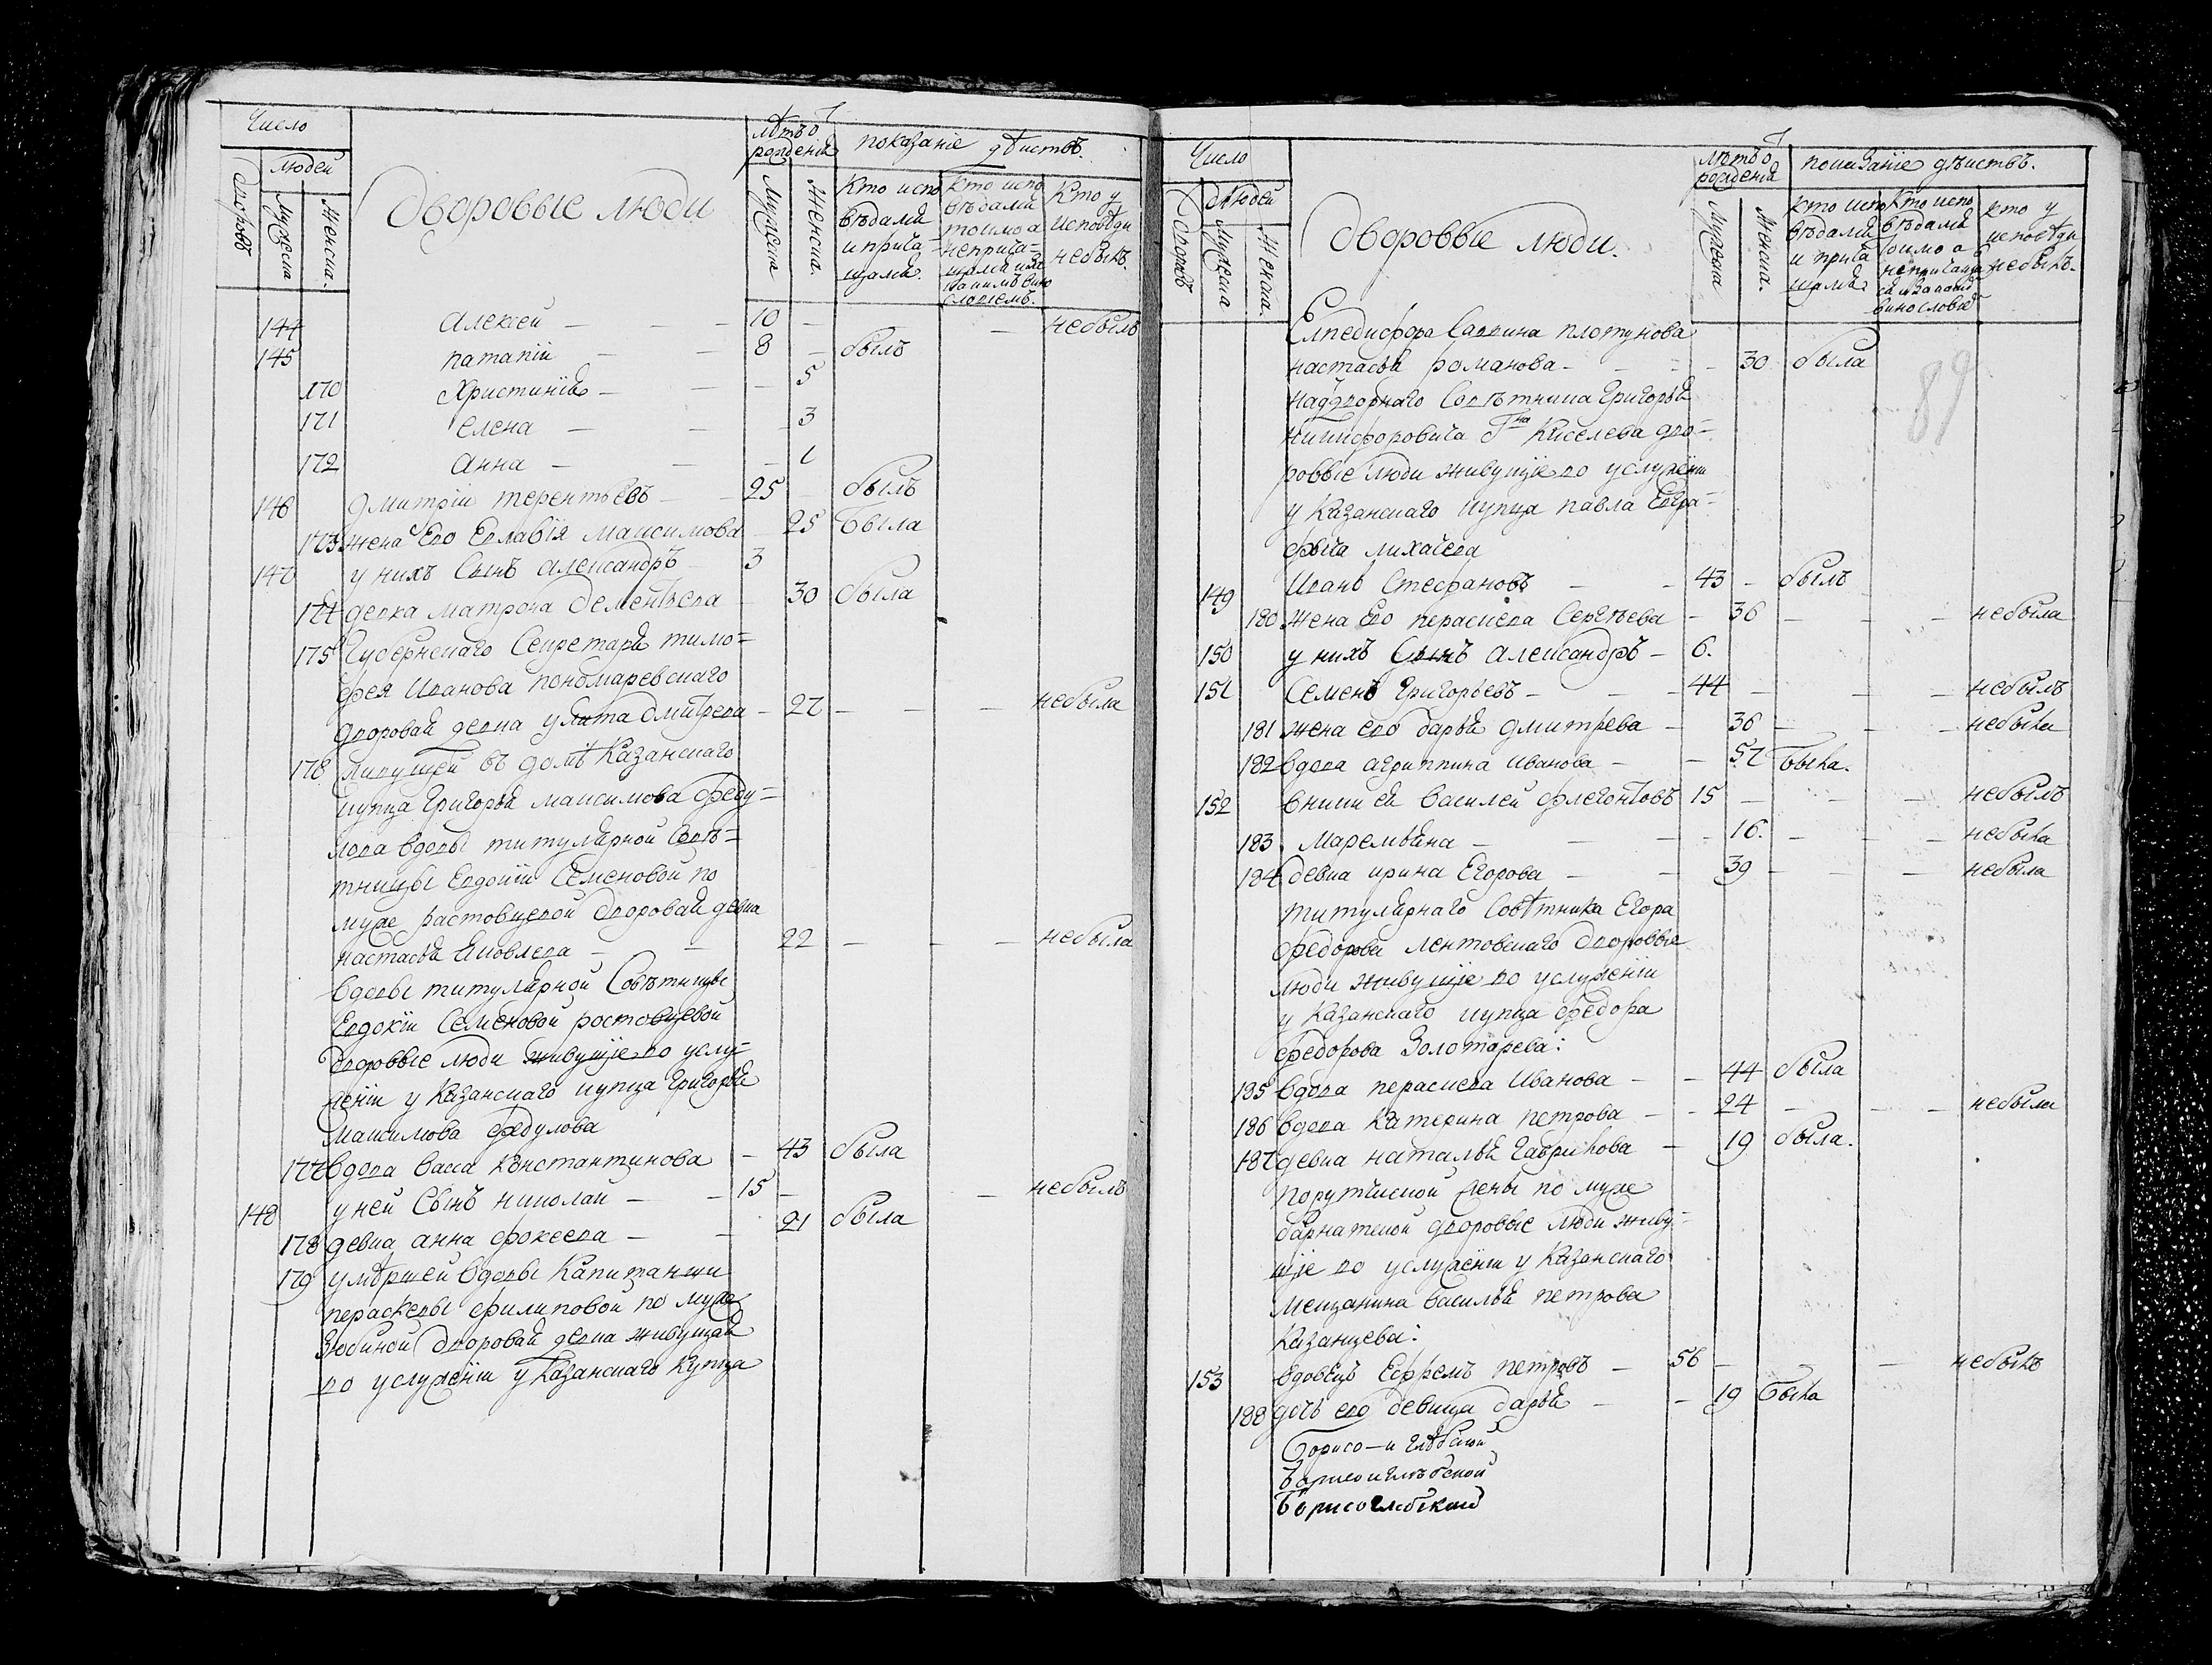 Число
людей
дворовъ
Мужеска
Женска.
Дворовые люди
лѣтъ ѿ
рожденiя
Мужска
Женска.
показанiе дѣиствъ.
Кто испо
вѣдалися
и прича=
щался.
Кто испо
вѣдался
токмо а
не прича=
щался
Кто у
исповѣди
небылъ.
144 Алексей — — 10 — — небылъ
145 патапiи — — 8 — былъ
170 Христинiя — — — 5
171 Елена — — 3
172 Анна — — — 1
146 дмитрiи терентьевъ — — 25 былъ
173 жена Его Евлавiя максимова 25 была
147 у нихъ Сынъ александръ 3
174 девка матрона дементьева 30 была
175 Губернскаго Секретаря тимо=
фея Иванова пономаревскаго
дворовая девка улита дмитрева — 27 — — — небыла
176 живущей въ домѣ Казанскаго
купца Григорья максимова феду=
лова вдовы титулярной Совѣ=
тницы Евдокiи Семеновой по
муже растовцевой дворовая девка
настасья Яковлева — — 22 — — — небыла
вдовы титулярной Совѣтницы
Евдокiи Семеновой ростовцевой
дворовые люди живущiе во услу=
женiи у Казанскаго купца Григорья
максимова федулова
177 вдова васа константинова — 43 была
148 у ней Сынъ николаи — — 15 — — небылъ
178 девка анна фокеева — — 21 была
179 умѣршей вдовы капитанши
перасковьи филиповой по муже
Зюбиной дворовая девка живущая
во услуженiи у Казанскаго купца
Число
людей
дворовъ
Мужеска
Женска.
дворовые люди.
лѣтъ ѿ
рожденiя
Мужска
Женска.
показанiе дѣиствъ.
кто испо
вѣдался
и прича
щался
Кто испо
вѣдался
токмо а
непричаща
кто у
исповѣди
небылъ.
89
Елпедифора Саввина плотунова
настасья романова — — — 30 была
надворнаго Совѣтника Григорья
никифоровича Г на Киселева дво=
ровые люди живущiе во услуженiи
у Казанскаго купца павла Евгра=
фыча лихачева
149 Иванъ Стефановъ — — 43 — былъ
180 жена Его перасковья Сергѣева — 36 — — — небыла
150 у нихъ Сынъ александръ — 6.
151 Семенъ Григорьевъ — — — 44 — — — небылъ
181 жена его дарья дмитрева — 36 — — небыла
182 вдова агрипина иванова — — 57 была.
152 внукъ ея василеи флегонтовъ 15 — — — небылъ
183 Маремьяна — — — 16. — — небыла
184 девка ирина Егорова — — 39 — — — небыла
титулярнаго Совѣтника Егора
федорова лентовскаго дворовые
люди живущiе во услуженiи
у Казанскаго купца федора
федорова Золотарева:
185 вдова перасковья Иванова — — 44 была
186 вдова катерина петрова — — 24 — — — небыла
187 девка наталья гаврилова — 19 была.
порутчиской жены по муже
дворовые люди живу=
щiе во услуженiи у Казанскаго
мещанина василья петрова
казанцева:
153 вдовецъ Ефремъ петровъ — 56 — — небылъ
188 дочь его девица дарья — — 19 была
Борисо-и глѣбскiй
Борисоиглѣбской
Борисоглѣбский